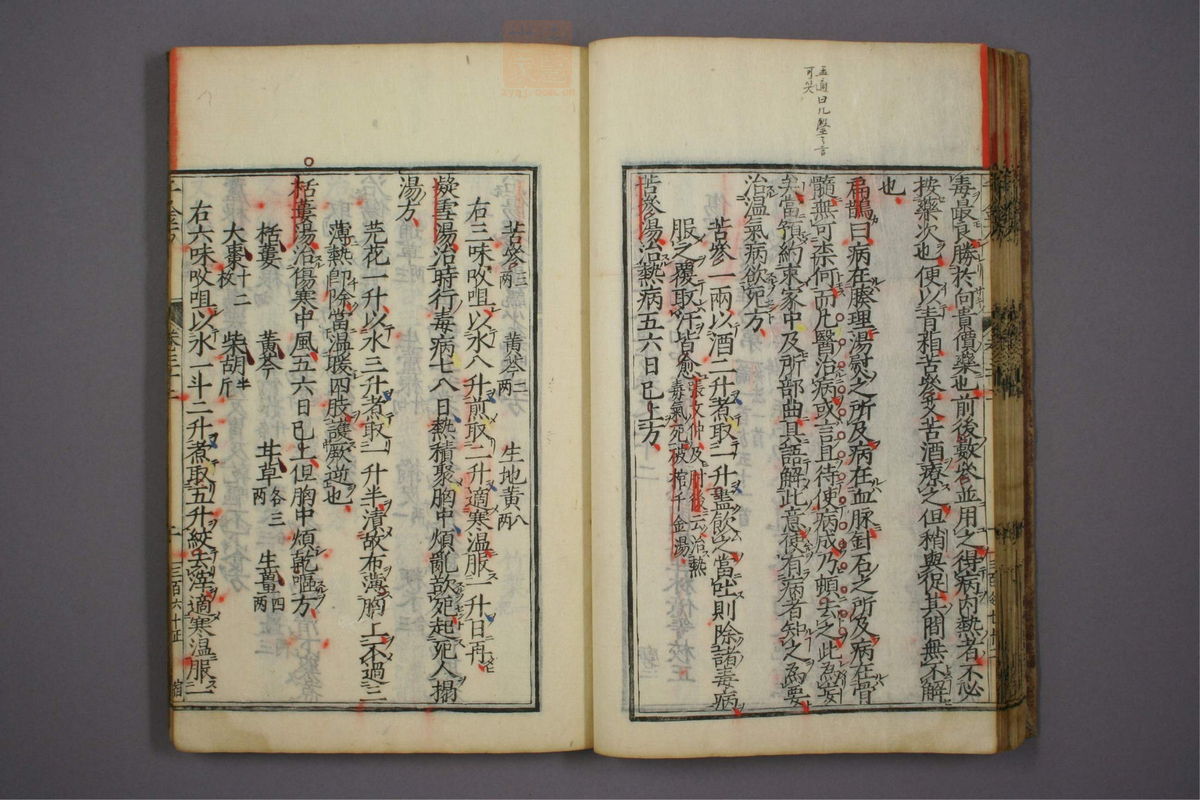 孟適曰凡醫之言
可笑
毒最良勝於向貴價藥也前後數參並用之得病內熱者不必
按藥次也便以青相苦參艾苦酒療之但稍與促其間無不解
也
扁鵲曰病在腠理湯熨之所及病在血脉針石之所及病在骨
髓無可柰何而凡醫治病或言且待使病成乃頓去之此為妄
矣當預約束家中及所部曲具語解此意使有病者知之為要
治溫氣病欲死方
苦參一兩以酒二升煮取一升盡飲之當吐則除諸毒病
服之覆取汗皆愈張文仲及肘後云治熱
毒氣死破棺千金湯
苦參湯治熱病五六日已上方
苦參三兩 黃芩二兩 生地黃八兩
右三味㕮咀以水八升煎取二升適寒溫服一升日再
凝雪湯治時行毒病七八日熱積聚胸中煩亂欲死起死人搨
湯方
芫花一升以水三升煮取一升半漬故布薄胸上不過三
薄熱即除當溫暖四肢護厥逆也
栝蔞湯治傷寒中風五六日已上但胸中煩乾嘔方
栝蔞 黃芩 甘草各三兩 生薑四兩
大棗十二枚 柴胡半斤
右六味㕮咀以水一斗二升煮取五升絞去滓適寒溫服一